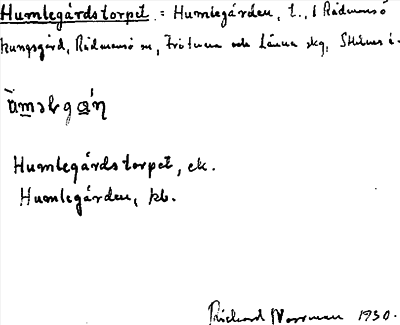 Humlegårdstorpet. = Humlegården, t., i Rådmansö
kungsgård, Rådmansö sn, Frötuna och Länna skg, Sthlms l.
Humlegårdstorpet, ek.
Humlegården, kb.
Rickard Norrman 1930.